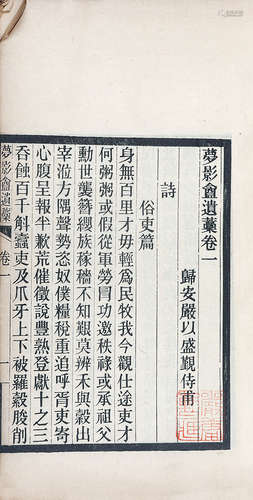 夢影盦遺藁卷一
歸安嚴以盛覲侍甫
詩
俗吏篇
身無百里才毋輕為民牧我今觀仕途吏才
何粥粥或假從軍勞冐功邀秩祿或承祖父
勳世襲簪纓族稼穡不知艱莫辨禾與穀出
宰涖方隅聲勢恣奴僕糧稅重追呼胥吏寄
心腹呈報半歉荒催徵說豐熟登獻十之三
吞蝕百千斛蠹吏及爪牙上下被羅縠朘削
夢影盦遺藁
卷一
一